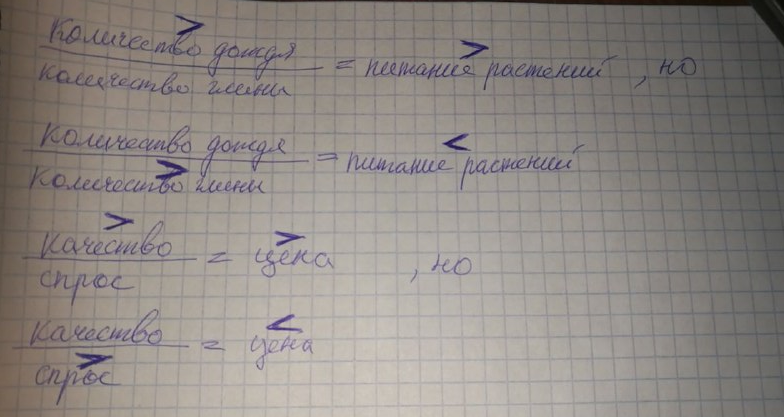 >
Количество дождя
количество глины
= питание растений, но
>
Количество дождя
Количество глины
>
= питание растений
<
>
качество
спрос
= цена, но
>
качество
спрос
>
= цена
<